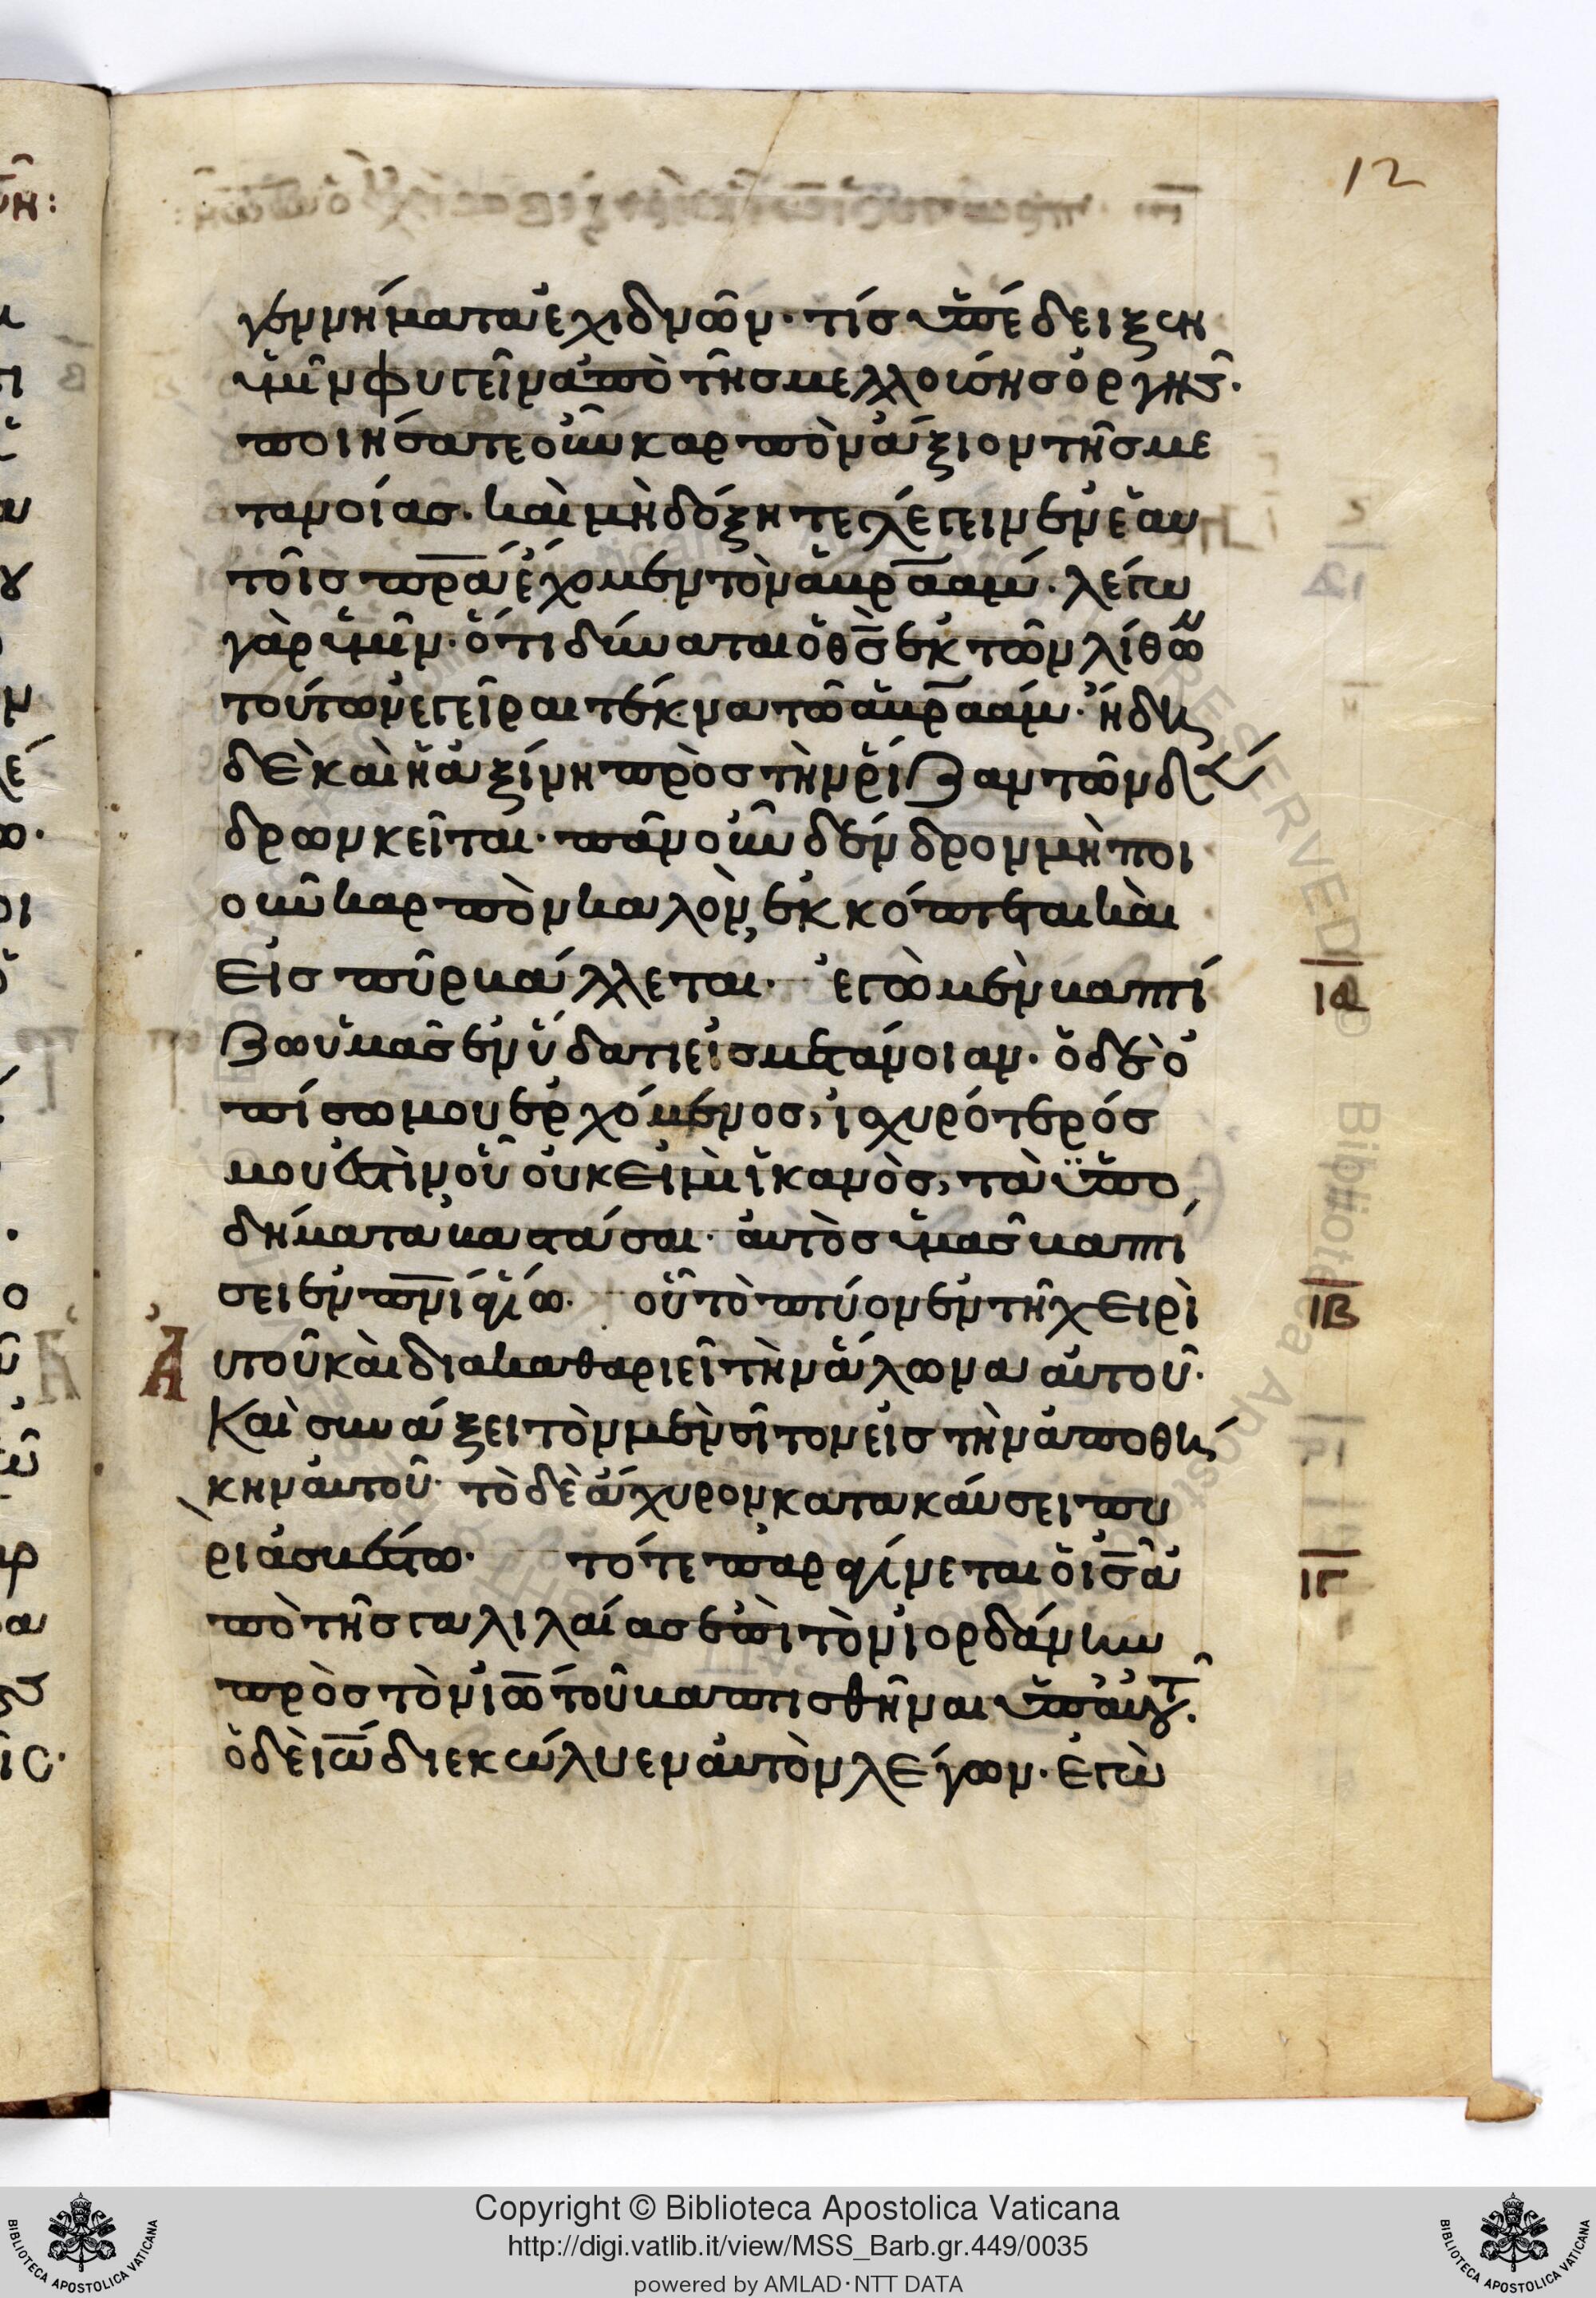 12
γεννήματα ἐχιδνῶν· τίς ὑπέδειξεν
ὑμῖν φυγεῖν ἀπὸ τῆς μελλούσης ὀργῆς·
ποιήσατε οὖν καρπὸν ἄξιον τῆς με
τανοίας· καὶ μὴ δόξητε λέγειν ἐν ἑαυ
τοῖς π̅ρ̅α ἔχομεν τὸν ἀβρ̅αάμ· λέγω
γὰρ ὑμῖν· ὅτι δύναται ὁ θ̅ς̅ ἐκ τῶν λίθων
τούτων ἐγεῖραι τέκνα τῶ ἀβρ̅αάμ· ἤδη
δὲ καὶ ἡ ἀξίνη πρὸς τὴν ῥίζαν τῶν δέν
δρων κεῖται· πᾶν οὖν δένδρον μὴ ποι
οῦν καρπὸν καλὸν, ἐκκόπτεται καὶ
εἰς πῦρ βάλλεται· ἐγὼ μὲν βαπτί
ΙΑ
ζω ὑμᾶς ἐν ὕδατι εἰς μετάνοιαν· ὁ δὲ ὀ
πίσω μου ἐρχόμενος, ἰσχυρότερός
μου ἐστὶν, οὗ οὐκ εἰμὶ ἱκανὸς, τὰ ὑπο
δήματα βαστάσαι· αὐτὸς ὑμᾶς βαπτί
σει ἐν π̅ν̅ι ἁγίω· οὗ τὸ πτύον ἐν τῆ χειρὶ
ΙΒ
Α
υτοῦ καὶ διακαθαριεῖ τὴν ἅλωνα αὐτοῦ·
Καὶ συνάξει τὸν μὲν σῖτον εἰς τὴν ἀποθή
κην αὐτοῦ· τὸ δὲ ἄχυρον κατακαύσει πυ
ρὶ ἀσβέστω· τότε παραγίνεται ὁ ι̅ς̅ ἀ
ΙΓ
πὸ τῆς γαλιλαίας ἐπὶ τὸν ἰορδάνην
πρὸς τὸν ἰω̅ τοῦ βαπτισθῆναι ὑπ' αὐτοῦ·
ὁ δὲ ἰω̅ διεκώλυεν αὐτὸν λέγων· ἐγὼ
Copyright © Biblioteca Apostolica Vaticana
http://digi.vatlib.it/view/MSS_Barb.gr.449/0035
powered by AMLAD·NTT DATA
BIBLIOTECA APOSTOLICA VATICANA
BIBLIOTECA APOSTOLICA VATICANA